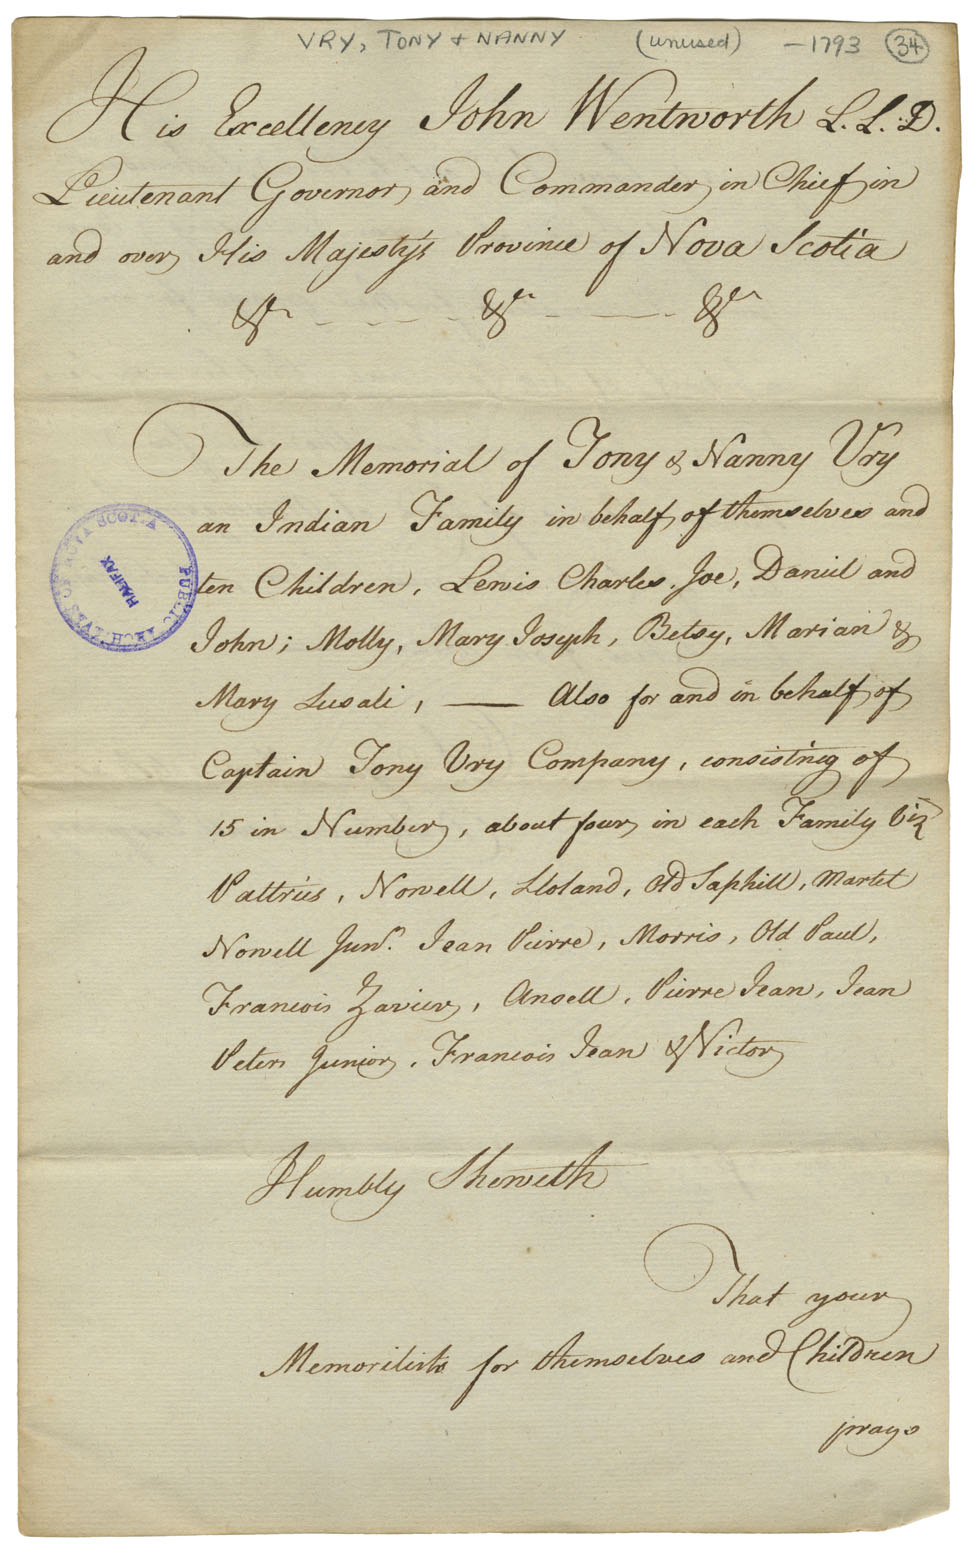 VRY, TONY + NANNY (unused) - 1793 34
His Excellency John Wentworth L.L.D.
Lieutenant Governor and Commander in Chief in
and over His Majesty's Province of Nova Scotia
&c - - - - &c - - - &c
The Memorial of Tony & Nanny Vry
an Indian Family in behalf of themselves and
ten Children, Lewis Charles, Joe, Daniel and
John; Molly, Mary Joseph, Betsy, Marian &
Mary Susali, — Also for and in behalf of
Captain Tony Vry Company, consisting of
15 in Number, about four in each Family Viz
Pattrius, Nowell, Lloland, Old Saphill, Martet
Nowell Junr. Jean Pierre, Morris, Old Paul,
Francois Zavier, Ansell, Pierre Jean, Jean
Peter Junior, Francois Jean & Victor
Humbly Sheweth
That your
Memorilists for themselves and Children
prays
PUBLIC ARCHIVES OF NOVA SCOTIA
HALIFAX